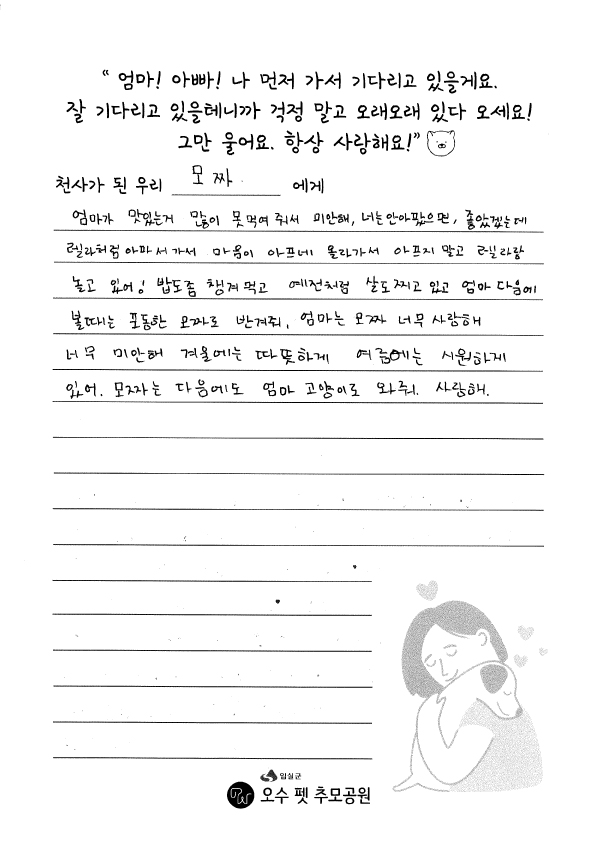 “ 엄마! 아빠! 나 먼저 가서 기다리고 있을게요.
잘 기다리고 있을테니까 걱정 말고 오래오래 있다 오세요!
그만 울어요. 항상 사랑해요!”
천사가 된 우리 모짜 에게
엄마가 맛있는거 많이 못먹여 줘서 미안해, 너는안아팠으면, 좋았겠는데
렐라처럼 아파서 가서 마음이 아프네 올라가서 아프지 말고 렐라랑
놀고 있어! 밥도좀 챙겨먹고 예전처럼 살도찌고 있고 엄마 다음에
볼때는 포동한 모짜로 반겨줘, 엄마는 모짜 너무 사랑해
너무 미안해 겨울에는 따뜻하게 여름에는 시원하게
있어. 모짜는 다음에도 엄마 고양이로 와줘. 사랑해.
임실군
오수 펫 추모공원